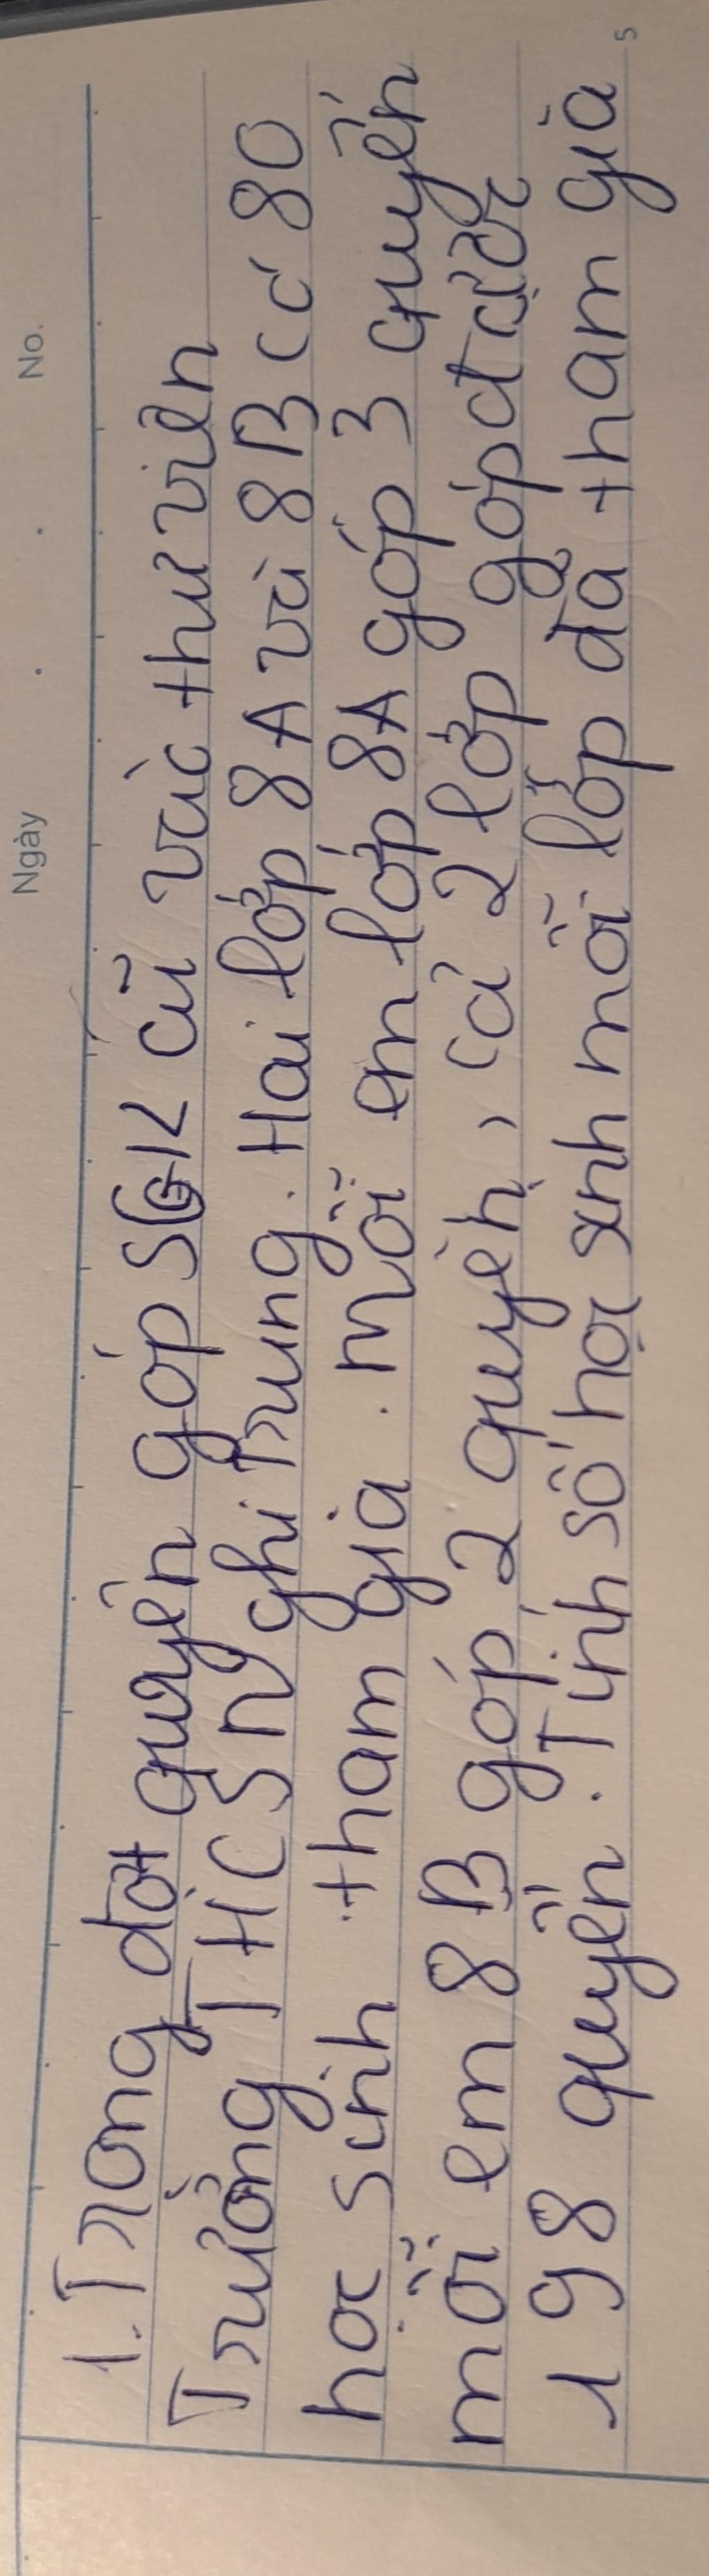 Ngày . . No.
1. Trong đợt quyên góp SGK cũ vào thư viện
Trường THCS Nghi Trung. Hai lớp 8A và 8B có 80
học sinh tham gia. Mỗi em lớp 8A góp 3 quyển
mỗi em 8B góp 2 quyển, cả 2 lớp góp được
198 quyển. Tính số học sinh mỗi lớp đã tham gia
5